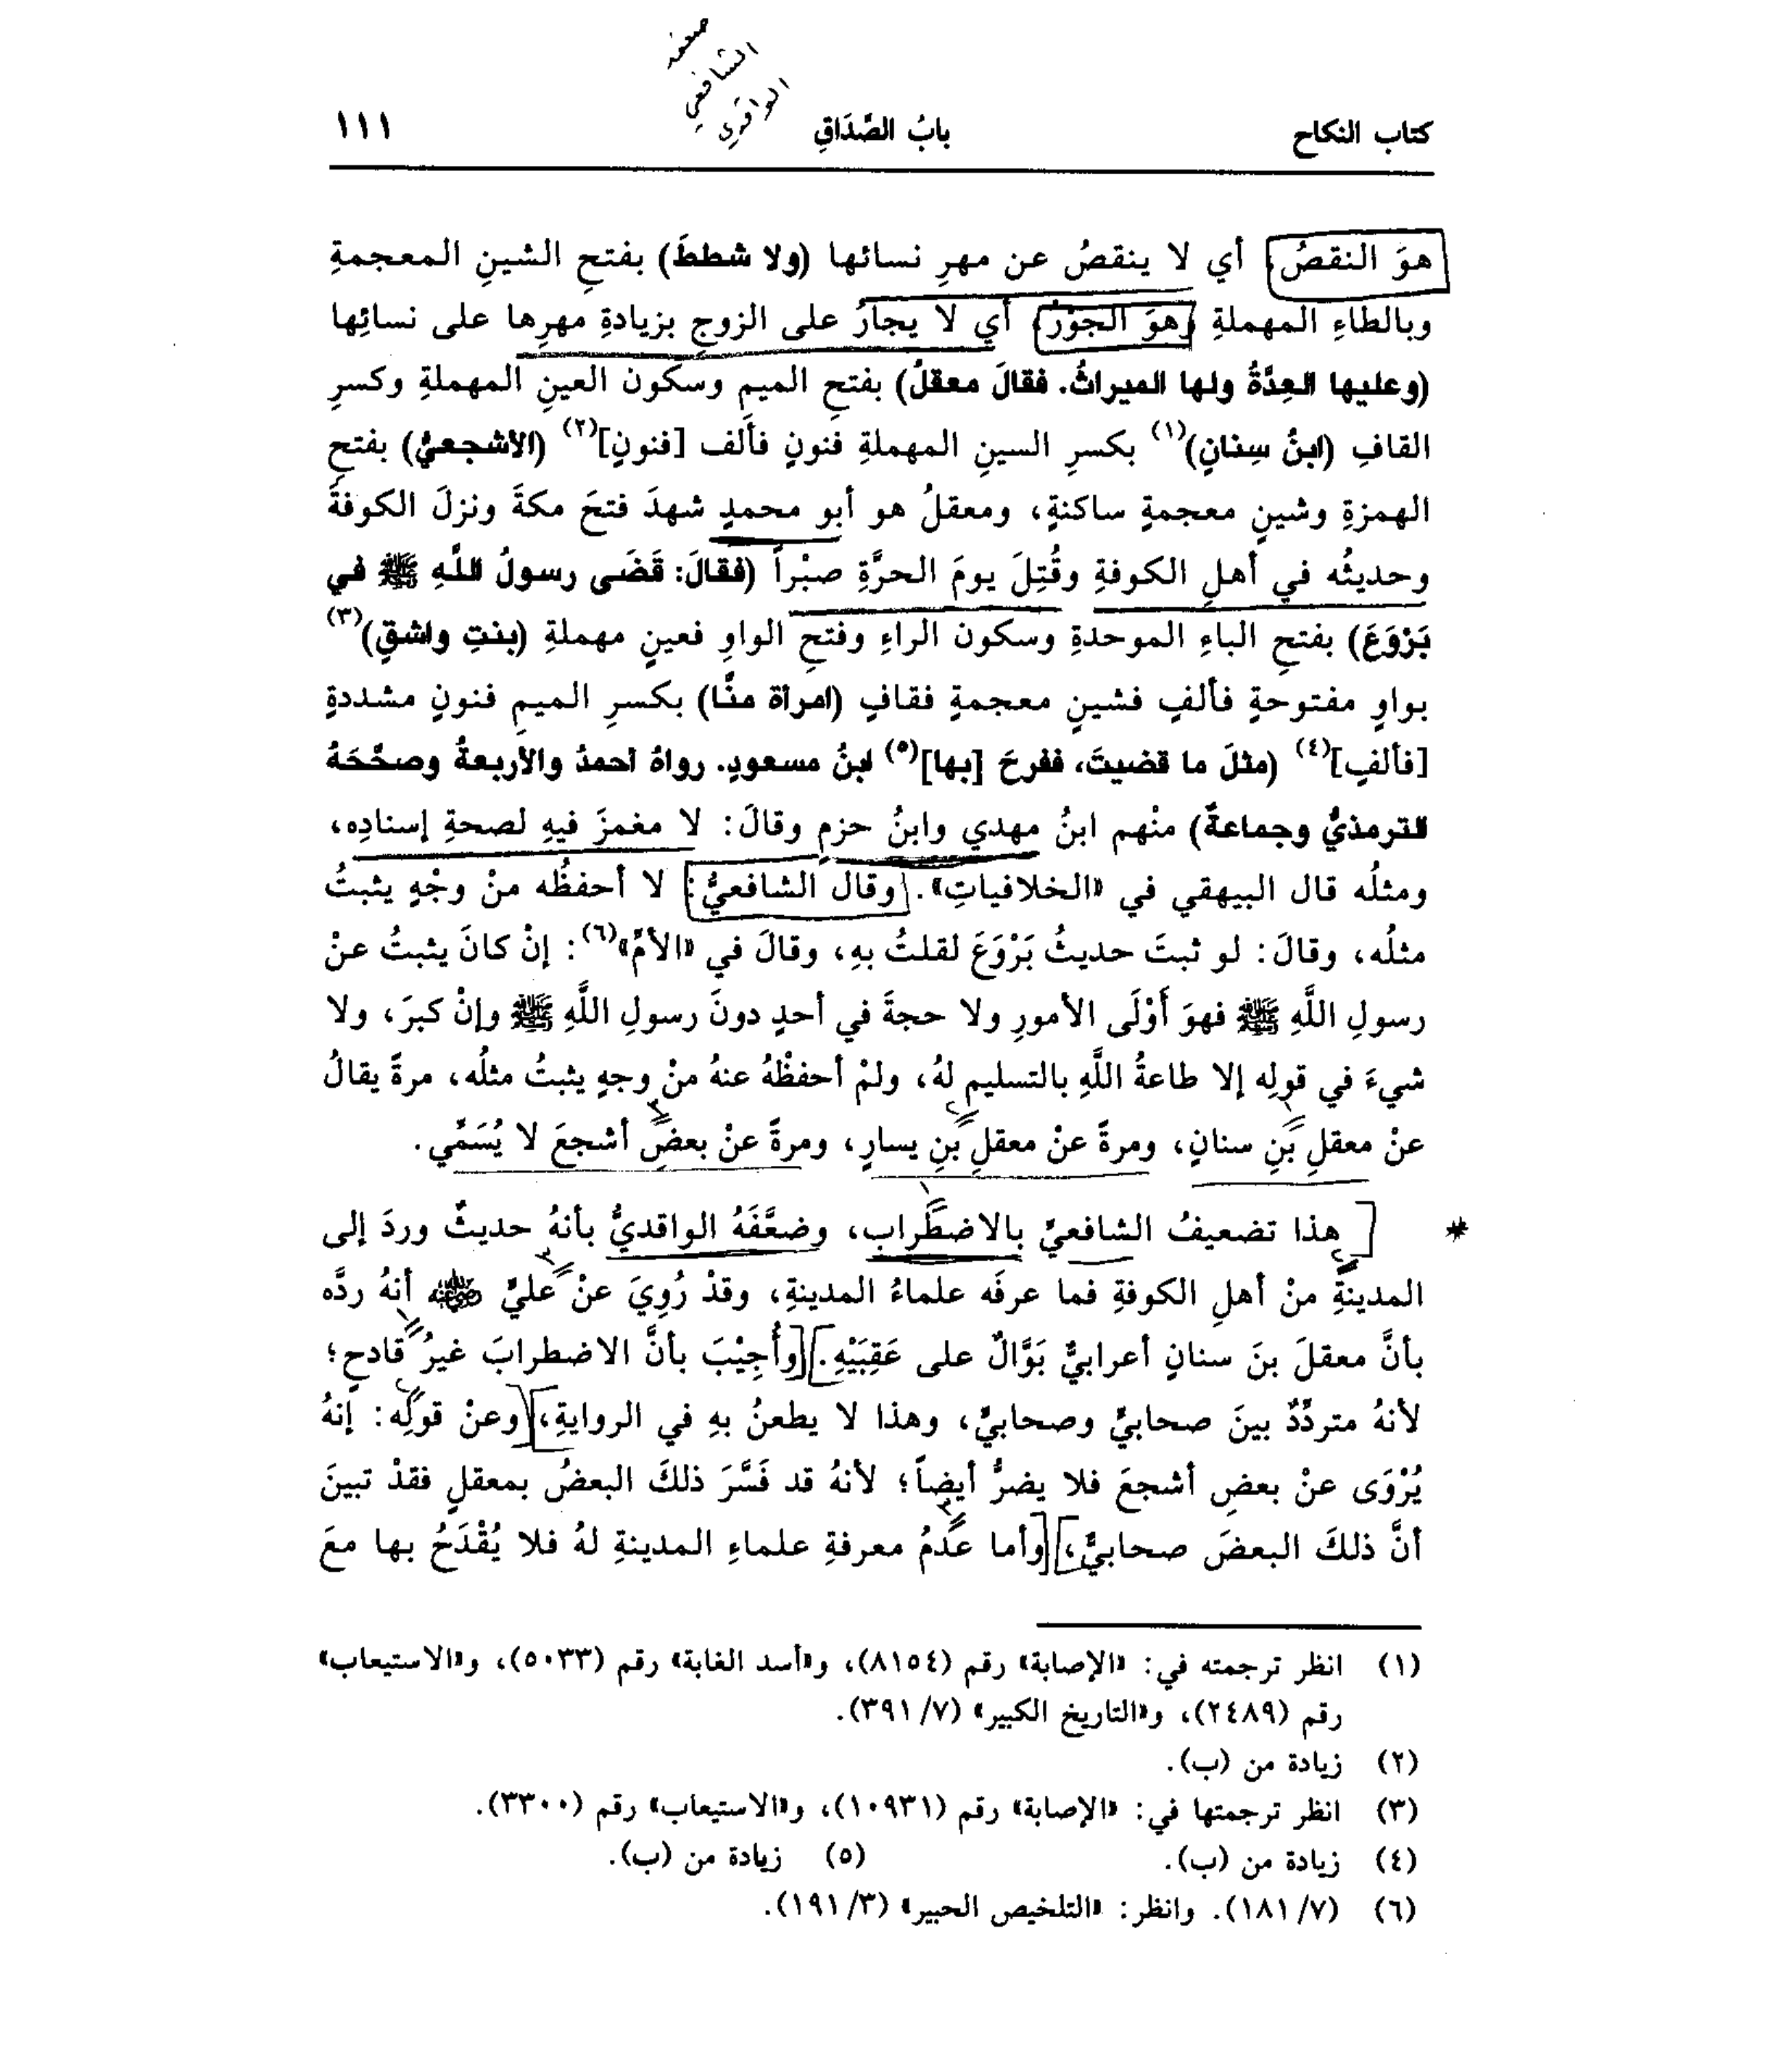 ضعفه
الشافعي
الواقدي
كتاب النكاح
بابُ الصَّدَاقِ
١١١
هوَ النقصُ، أي لا ينقصُ عن مهرِ نسائها (ولا شططَ) بفتحِ الشينِ المعجمةِ
وبالطاءِ المهملةِ وهوَ الجوْرُ، أي لا يجارُ على الزوجِ بزيادةِ مهرِها على نسائِها
(وعليها العِدَّةُ ولها الميراثُ. فقالَ معقلُ) بفتحِ الميمِ وسكون العينِ المهملةِ وكسرِ
القافِ (ابنُ سِنانٍ)(١) بكسرِ السينِ المهملةِ فنونٍ فألف [فنونٍ](٢) (الأشجعيُّ) بفتحِ
الهمزةِ وشينٍ معجمةٍ ساكنةٍ، ومعقلُ هو أبو محمدٍ شهدَ فتحَ مكةَ ونزلَ الكوفةَ
وحديثُه في أهلِ الكوفةِ وقُتِلَ يومَ الحرَّةِ صبْراً (فقالَ: قَضَى رسولُ اللَّهِ ﷺ في
بَرْوَعَ) بفتحِ الباءِ الموحدةِ وسكون الراءِ وفتحِ الواوِ فعينٍ مهملةِ (بنتِ واشقٍ)(٣)
بواوٍ مفتوحةٍ فألفٍ فشينٍ معجمةٍ فقافٍ (امرأة منَّا) بكسرِ الميمِ فنونٍ مشددةٍ
[فألفٍ](٤) (مثلَ ما قضيتَ، ففرحَ [بها](٥) ابنُ مسعودٍ. رواهُ أحمدُ والأربعةُ وصحَّحَهُ
الترمذيُّ وجماعةٌ) منْهم ابنُ مهدي وابنُ حزمٍ وقالَ: لا مغمزَ فيهِ لصحةِ إسنادِه،
ومثلُه قال البيهقي في «الخلافياتِ». وقال الشافعيُّ: لا أحفظُه منْ وجْهٍ يثبتُ
مثلُه، وقالَ: لو ثبتَ حديثُ بَرْوَعَ لقلتُ بهِ، وقالَ في «الأمِّ»(٦): إنْ كانَ يثبتُ عنْ
رسولِ اللَّهِ ﷺ فهوَ أَوْلَى الأمورِ ولا حجةَ في أحدٍ دونَ رسولِ اللَّهِ ﷺ وإنْ كبرَ، ولا
شيءَ في قولِه إلا طاعةُ اللَّهِ بالتسليمِ لهُ، ولمْ أحفظْهُ عنهُ منْ وجهٍ يثبتُ مثلُه، مرةً يقالُ
عنْ معقلِ بْنِ سنانٍ، ومرةً عنْ معقلِ بْنِ يسارٍ، ومرةً عنْ بعضِ أشجعَ لا يُسَمَّي.
* هذا تضعيفُ الشافعيِّ بالاضطرابِ، وضعَّفَهُ الواقديُّ بأنهُ حديثٌ وردَ إلى
المدينةِ منْ أهلِ الكوفةِ فما عرفَه علماءُ المدينةِ، وقدْ رُوِيَ عنْ عليٍّ رضي الله عنه أنهُ ردَّه
بأنَّ معقلَ بنَ سنانٍ أعرابيٌّ بَوَّالٌ على عَقِبَيْهِ. وأُجِيْبَ بأنَّ الاضطرابَ غيرُ قادحٍ؛
لأنهُ متردِّدٌ بينَ صحابيٍّ وصحابيٍّ، وهذا لا يطعنُ بهِ في الروايةِ، وعنْ قولِه: إنهُ
يُرْوَى عنْ بعضِ أشجعَ فلا يضرُّ أيضاً؛ لأنهُ قد فَسَّرَ ذلكَ البعضُ بمعقلٍ فقدْ تبينَ
أنَّ ذلكَ البعضَ صحابيٌّ، وأما عدمُ معرفةِ علماءِ المدينةِ لهُ فلا يُقْدَحُ بها معَ
(١) انظر ترجمته في: «الإصابة» رقم (٨١٥٤)، و«أسد الغابة» رقم (٥٠٣٣)، و«الاستيعاب»
رقم (٢٤٨٩)، و«التاريخ الكبير» (٧/ ٣٩١).
(٢) زيادة من (ب).
(٣) انظر ترجمتها في: «الإصابة» رقم (١٠٩٣١)، و«الاستيعاب» رقم (٣٣٠٠).
(٤) زيادة من (ب). (٥) زيادة من (ب).
(٦) (٧/ ١٨١). وانظر: «التلخيص الحبير» (٣/ ١٩١).